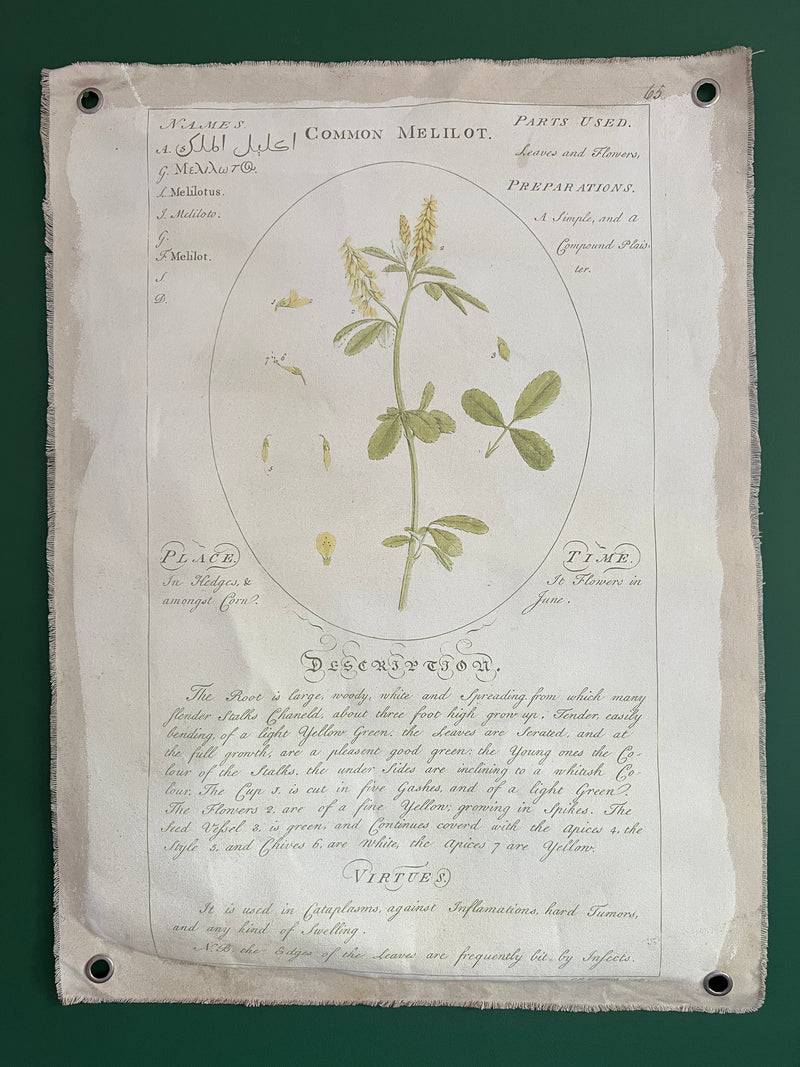 65
NAMES.
A. اكليل الملك
G. Μελιλωτ
L. Melilotus.
I. Meliloto.
G.
F. Melilot.
S.
D.
COMMON MELILOT.
PARTS USED.
Leaves and Flowers,
PREPARATIONS.
A Simple, and a
Compound Plais-
ter.
1
2
2
3
7
6
5
PLACE.
In Hedges, &
amongst Corn.
TIME.
It Flowers in
June.
DESCRIPTION.
The Root is large, woody, white and Spreading from which many
slender Stalks Chaneld, about three foot high grow up. Tender, easily
bending, of a light Yellow Green; the Leaves are Serated, and at
the full growth, are a pleasent good green; the Young ones the Co-
lour of the Stalks, the under Sides are inclining to a whitish Co-
lour. The Cup 1. is cut in five Gashes, and of a light Green.
The Flowers 2. are of a fine Yellow, growing in Spikes. The
Seed Vessel 3. is green, and Continues coverd with the Apices 4, the
Style 5, and Chives 6, are White, the Apices 7 are Yellow.
VIRTUES.
It is used in Cataplasms, against Inflamations, hard Tumors,
and any kind of Swelling.
N.B. the Edges of the Leaves are frequently bit by Insects.